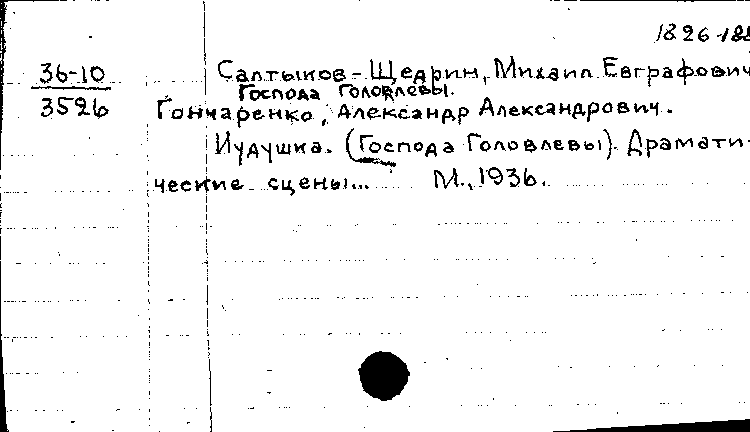 1826-188
36-10
3526
Салтыков-Щедрин, Михаил Евграфович
Господа Головлевы.
Гончаренко, Александр Александрович.
Иудушка. (Господа Головлевы). Драмати-
ческие сцены... М., 1936.